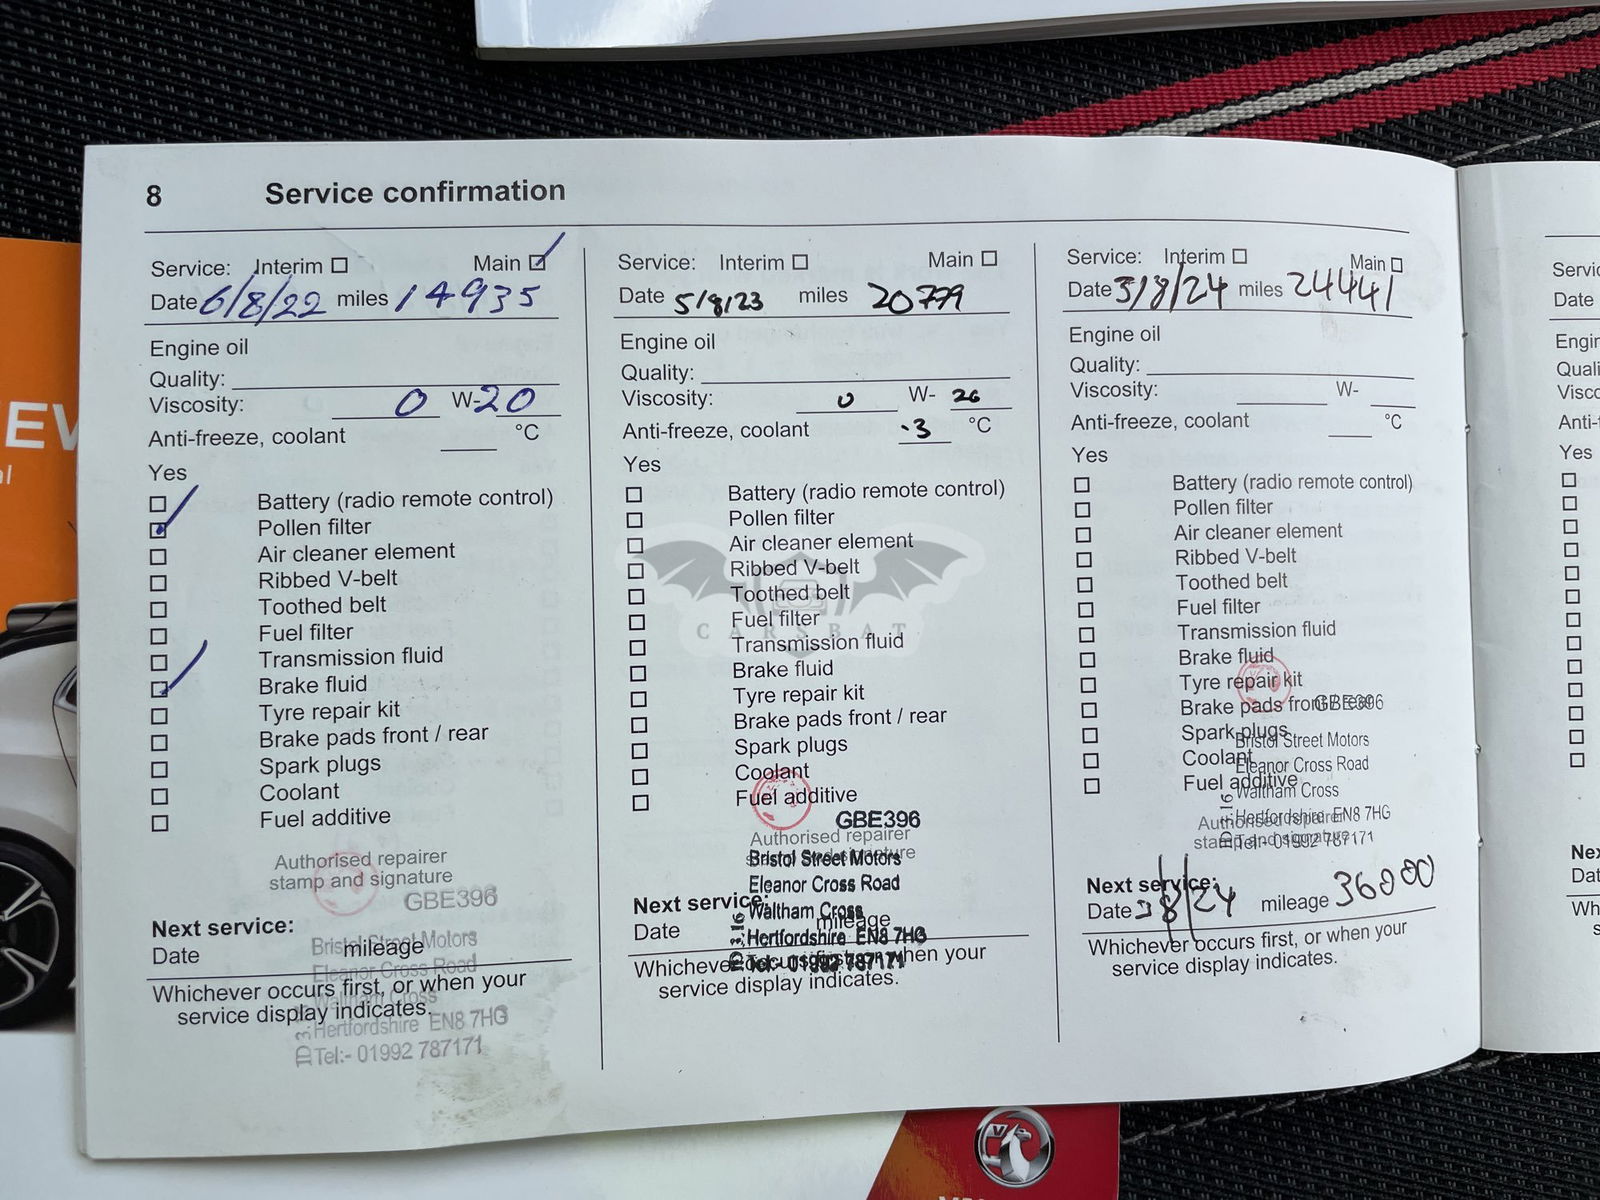 8 Service confirmation
Service: Interim Main
Date 6/8/22 miles 14935
Engine oil
Quality:
Viscosity: 0 W-20
Anti-freeze, coolant °C
Yes
Battery (radio remote control)
Pollen filter
Air cleaner element
Ribbed V-belt
Toothed belt
Fuel filter
Transmission fluid
Brake fluid
Tyre repair kit
Brake pads front / rear
Spark plugs
Coolant
Fuel additive
Authorised repairer
stamp and signature
GBE396
Next service:
Date mileage
Bristol Street Motors
Eleanor Cross Road
Waltham Cross
Hertfordshire EN8 7HG
Tel:- 01992 787171
Whichever occurs first, or when your
service display indicates.
Service: Interim Main
Date 5/8/23 miles 20779
Engine oil
Quality:
Viscosity: 0 W- 20
Anti-freeze, coolant -3 °C
Yes
Battery (radio remote control)
Pollen filter
Air cleaner element
Ribbed V-belt
Toothed belt
Fuel filter
Transmission fluid
Brake fluid
Tyre repair kit
Brake pads front / rear
Spark plugs
Coolant
Fuel additive
GBE396
Authorised repairer
stamp and signature
Bristol Street Motors
Eleanor Cross Road
Waltham Cross
Hertfordshire EN8 7HG
Tel:- 01992 787171
Next service:
Date mileage
Whichever occurs first, or when your
service display indicates.
CARSBAT
Service: Interim Main
Date 3/8/24 miles 24441
Engine oil
Quality:
Viscosity: W-
Anti-freeze, coolant °C
Yes
Battery (radio remote control)
Pollen filter
Air cleaner element
Ribbed V-belt
Toothed belt
Fuel filter
Transmission fluid
Brake fluid
Tyre repair kit
Brake pads front / rear
Spark plugs
Coolant
Fuel additive
GBE396
Bristol Street Motors
Eleanor Cross Road
Waltham Cross
Hertfordshire EN8 7HG
Tel:- 01992 787171
Authorised repairer
stamp and signature
Next service:
Date 3/8/24 mileage 36000
Whichever occurs first, or when your
service display indicates.
Date
Yes